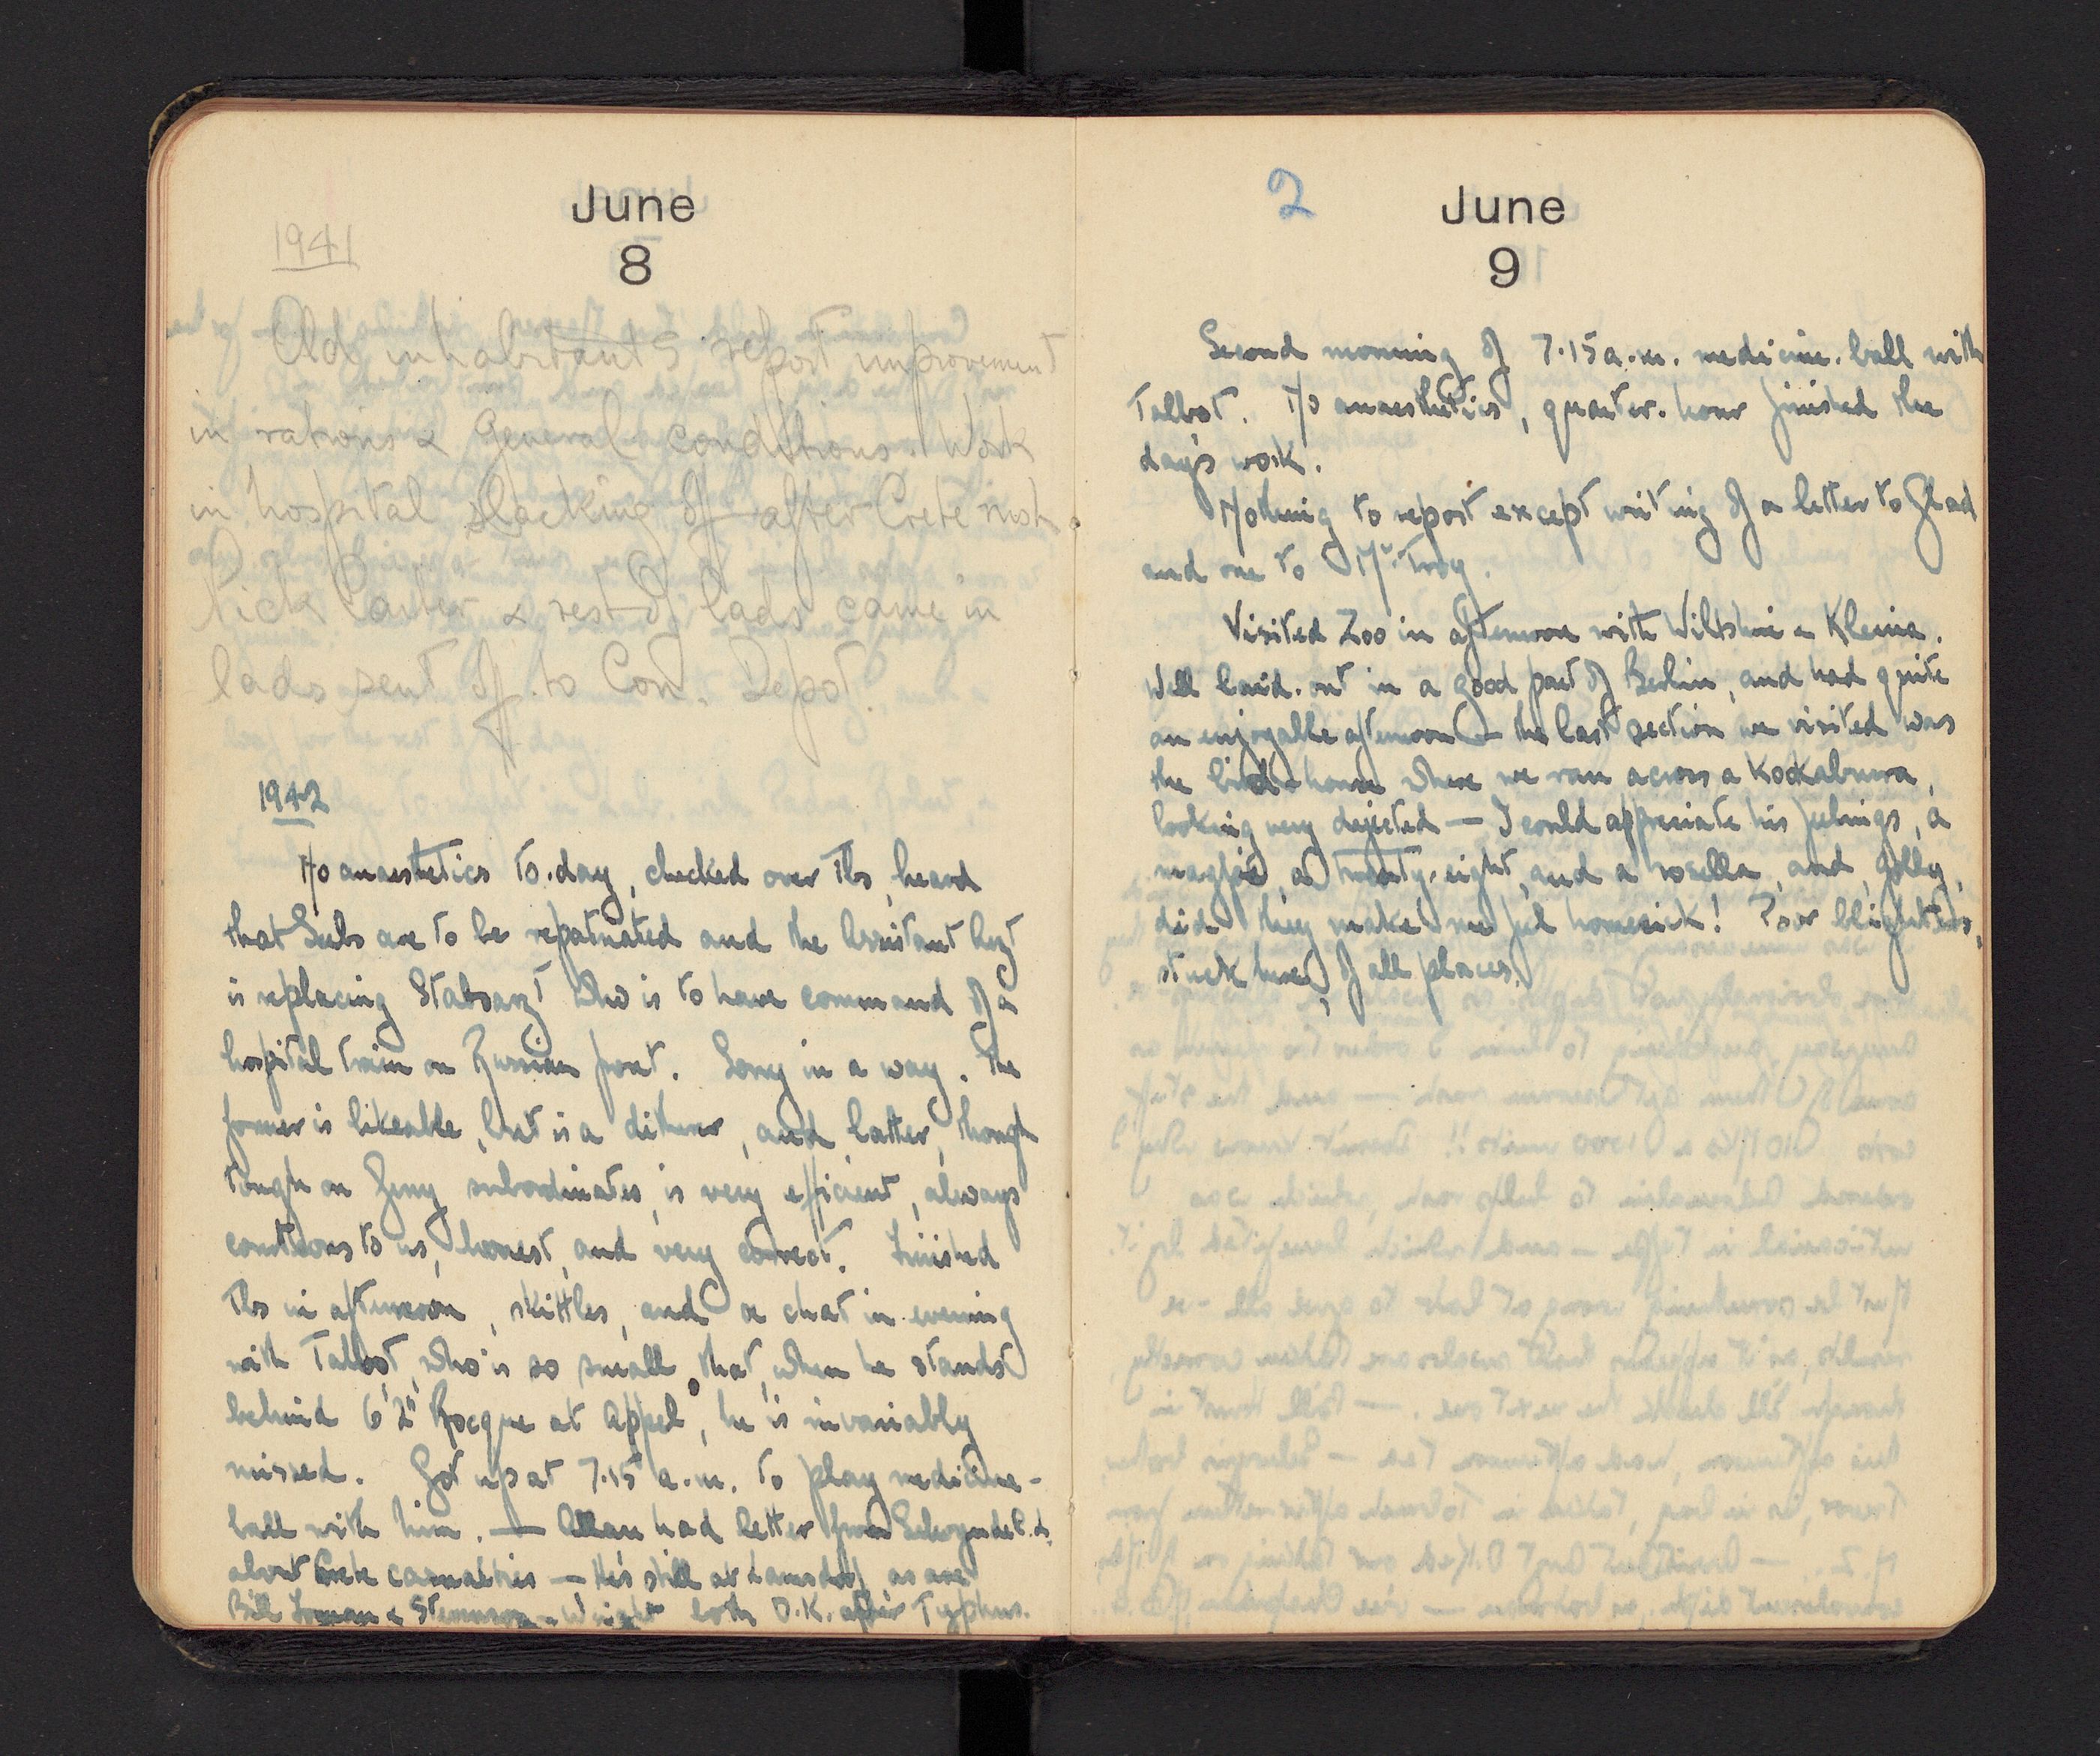 June
8
1941
Old inhabitants report improvement
in rations & general conditions. Work
in hospital slacking off after Crete rush.
Dick Parker & rest of lads came in
lads sent off to Con. Depot.
1942
No anaesthetics to.day, checked over Tbs, heard
that Seebs are to be repatriated and the Assistant Arzt
is replacing Stabsarzt who is to have command of a
hospital train on Russian front. Sorry in a way. The
former is likeable, but is a ditherer, and latter, though
tough on Jerry subordinates, is very efficient, always
courteous to us, honest, and very correct. Finished
Tbs in afternoon, skittles, and a chat in evening
with Talbot, who is so small, that, when he stands
behind 6'2" Rocque at Appel, he is invariably
missed. Got up at 7.15 a.m. to play medicine-
ball with him. — Allan had letter from Selwyn
about Crete casualties — He's still at Lamsdorf, as are
Bill & Stevenson & Wright both O.K. after Typhus.
2
June
9
Second morning of 7.15 a.m. medicine.ball with
Talbot. No anaesthetics, quarter.hour finished the
day's work.
Nothing to report except writing of a letter to Glad
and one to Mr. Troy.
Visited Zoo in afternoon with Wiltshire & Kleine.
Well laid.out in a good part of Berlin, and had quite
an enjoyable afternoon — the last section we visited was
the bird-house where we ran across a Kookaburra,
looking very dejected — I could appreciate his feelings, a
magpie, a twenty-eight, and a rosella, and, golly,
did they make me feel homesick! Poor blighters,
stuck here, of all places.